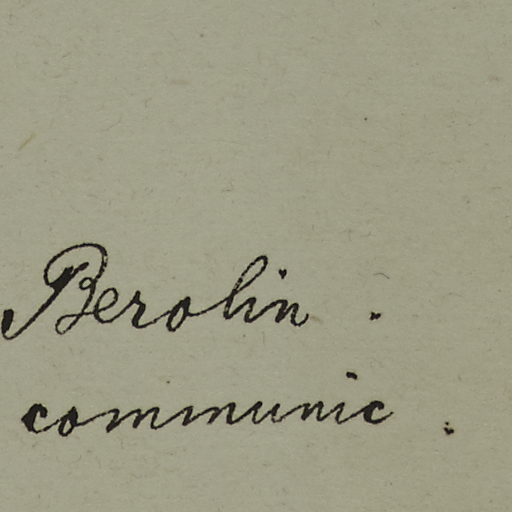 Berolin .
communic .